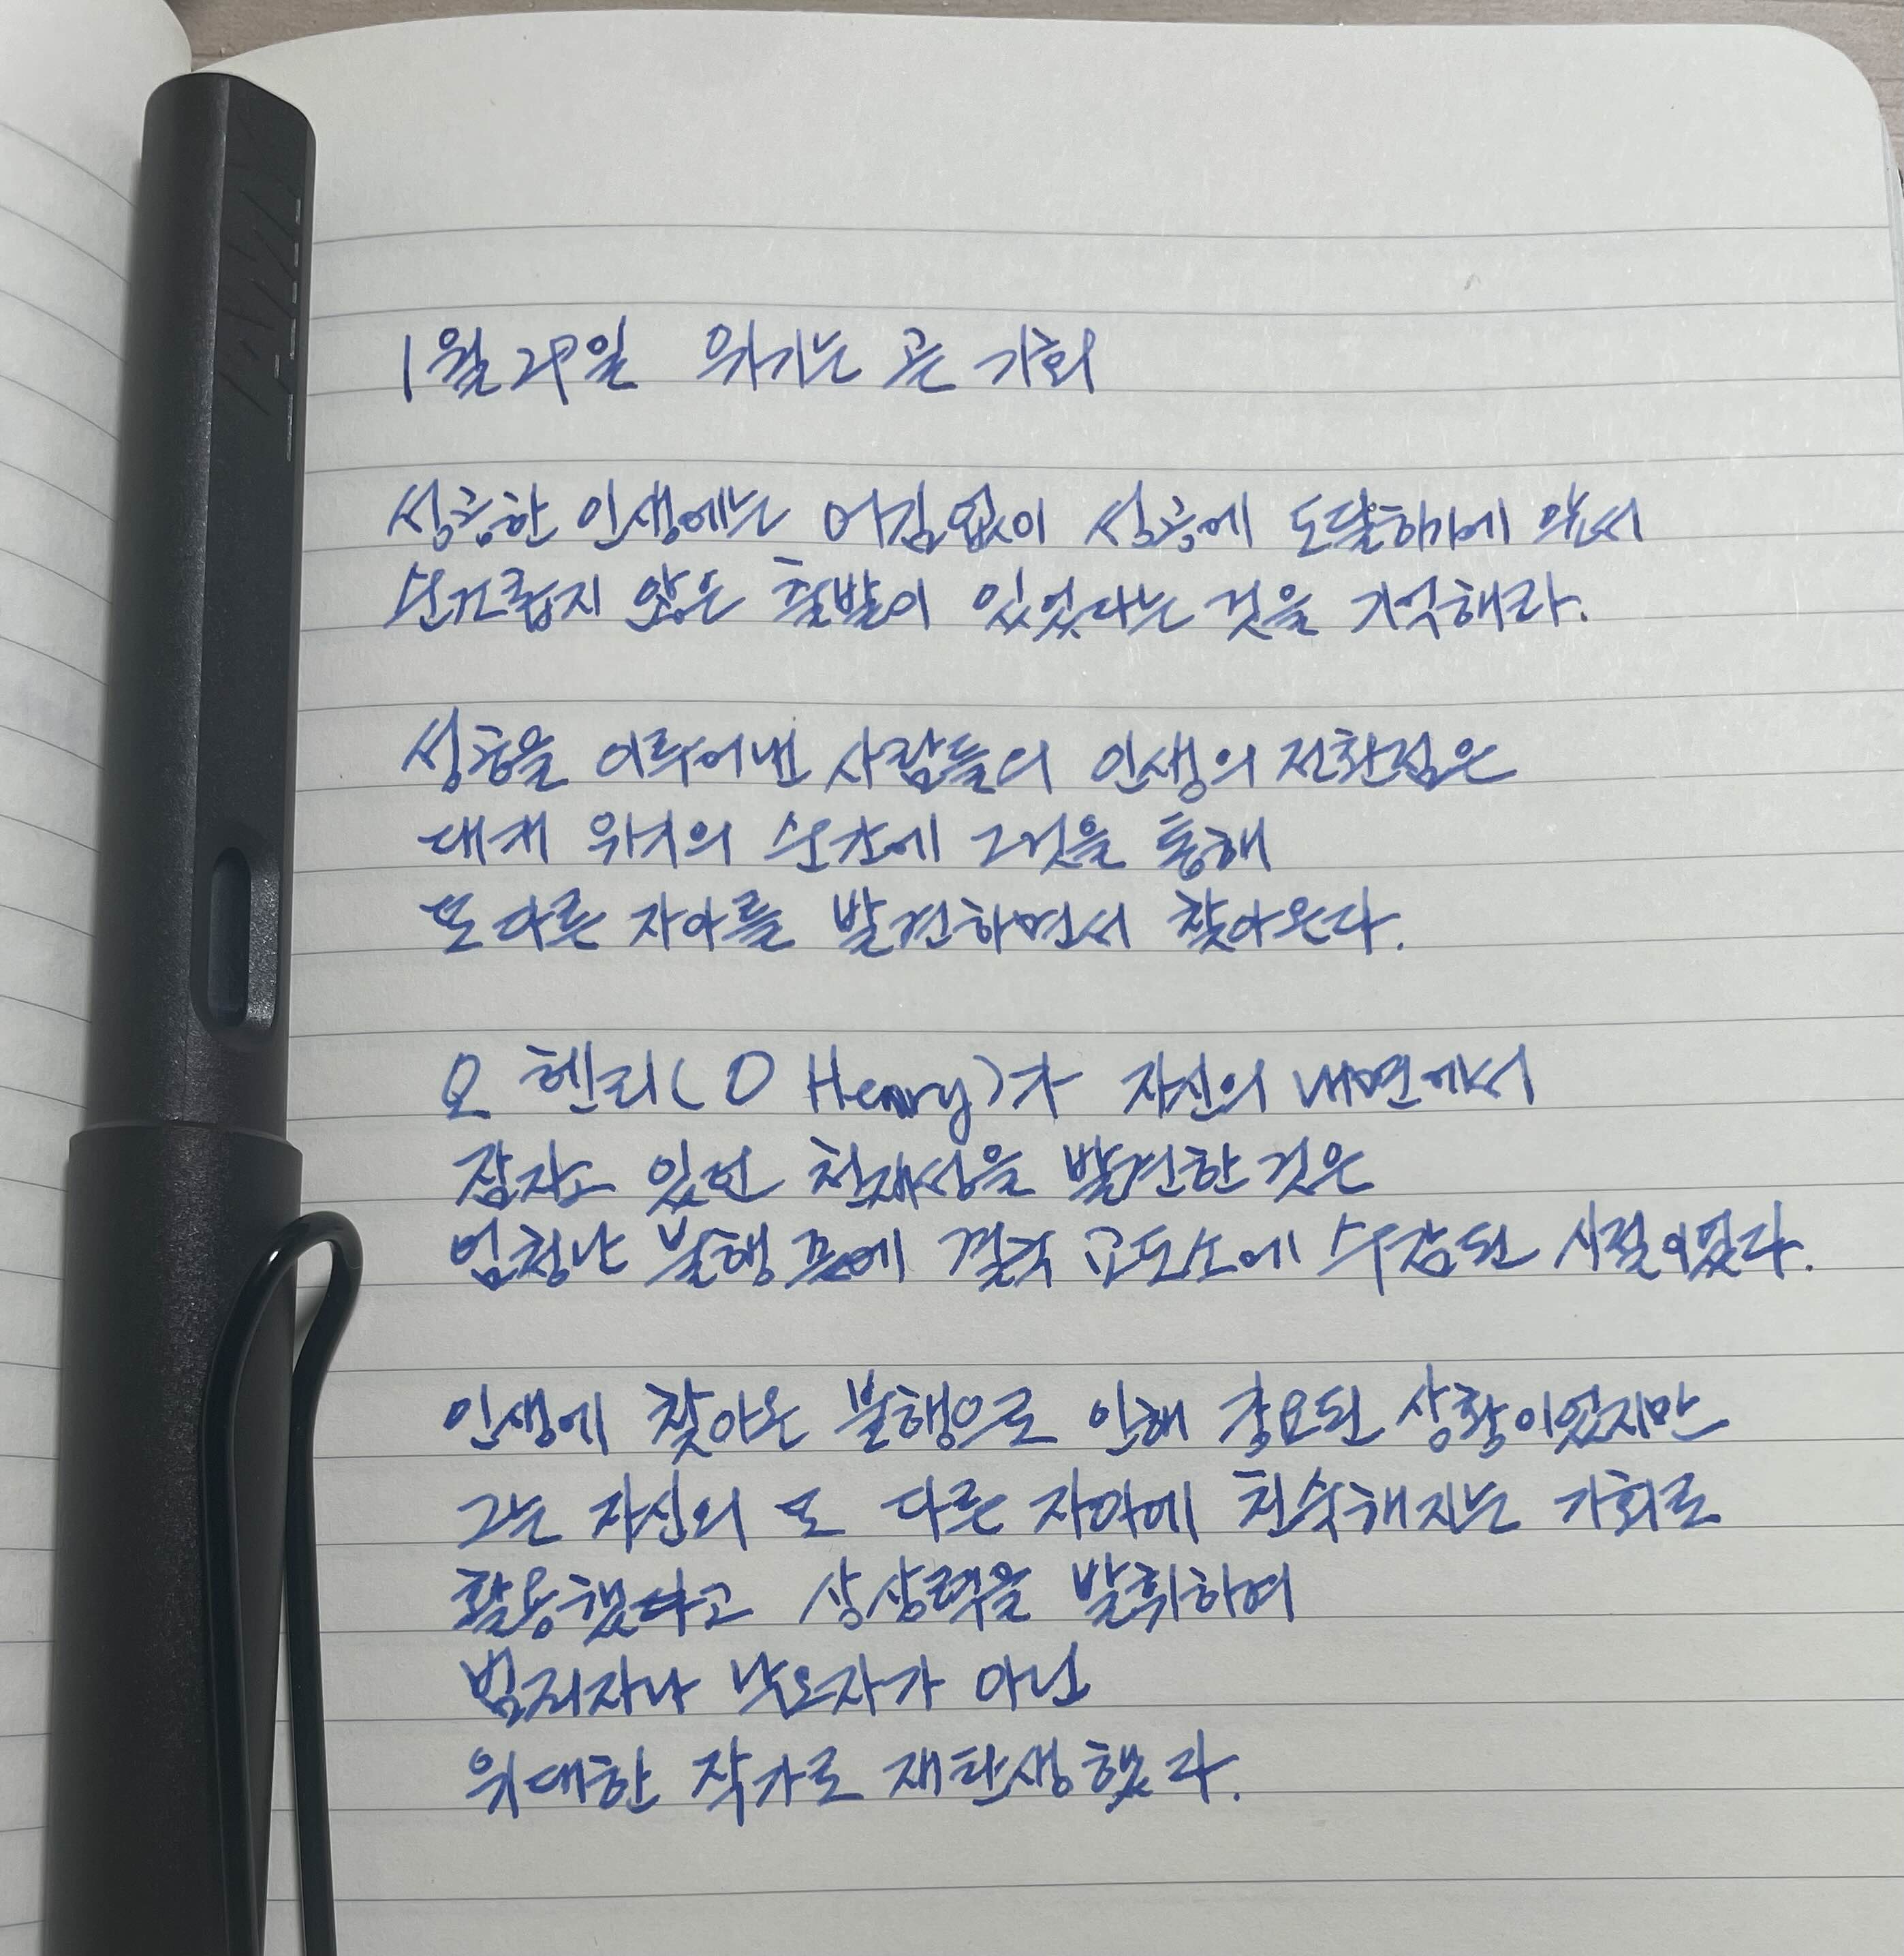 1월 29일 위기는 곧 기회
성공한 인생에는 어김없이 성공에 도달하기에 앞서
순조롭지 않은 출발이 있었다는 것을 기억해라.
성공을 이루어낸 사람들의 인생의 전환점은
대개 위기의 순간에 그것을 통해
또 다른 자아를 발견하면서 찾아온다.
오 헨리(O Henry)가 자신의 내면에서
잠자고 있던 천재성을 발견한 것은
엄청난 불행 끝에 결국 교도소에 수감된 시절이었다.
인생에 찾아온 불행으로 인해 강요된 상황이었지만
그는 자신의 또 다른 자아에 친숙해지는 기회로
활용했고 상상력을 발휘하여
범죄자나 낙오자가 아닌
위대한 작가로 재탄생했다.
LAMY